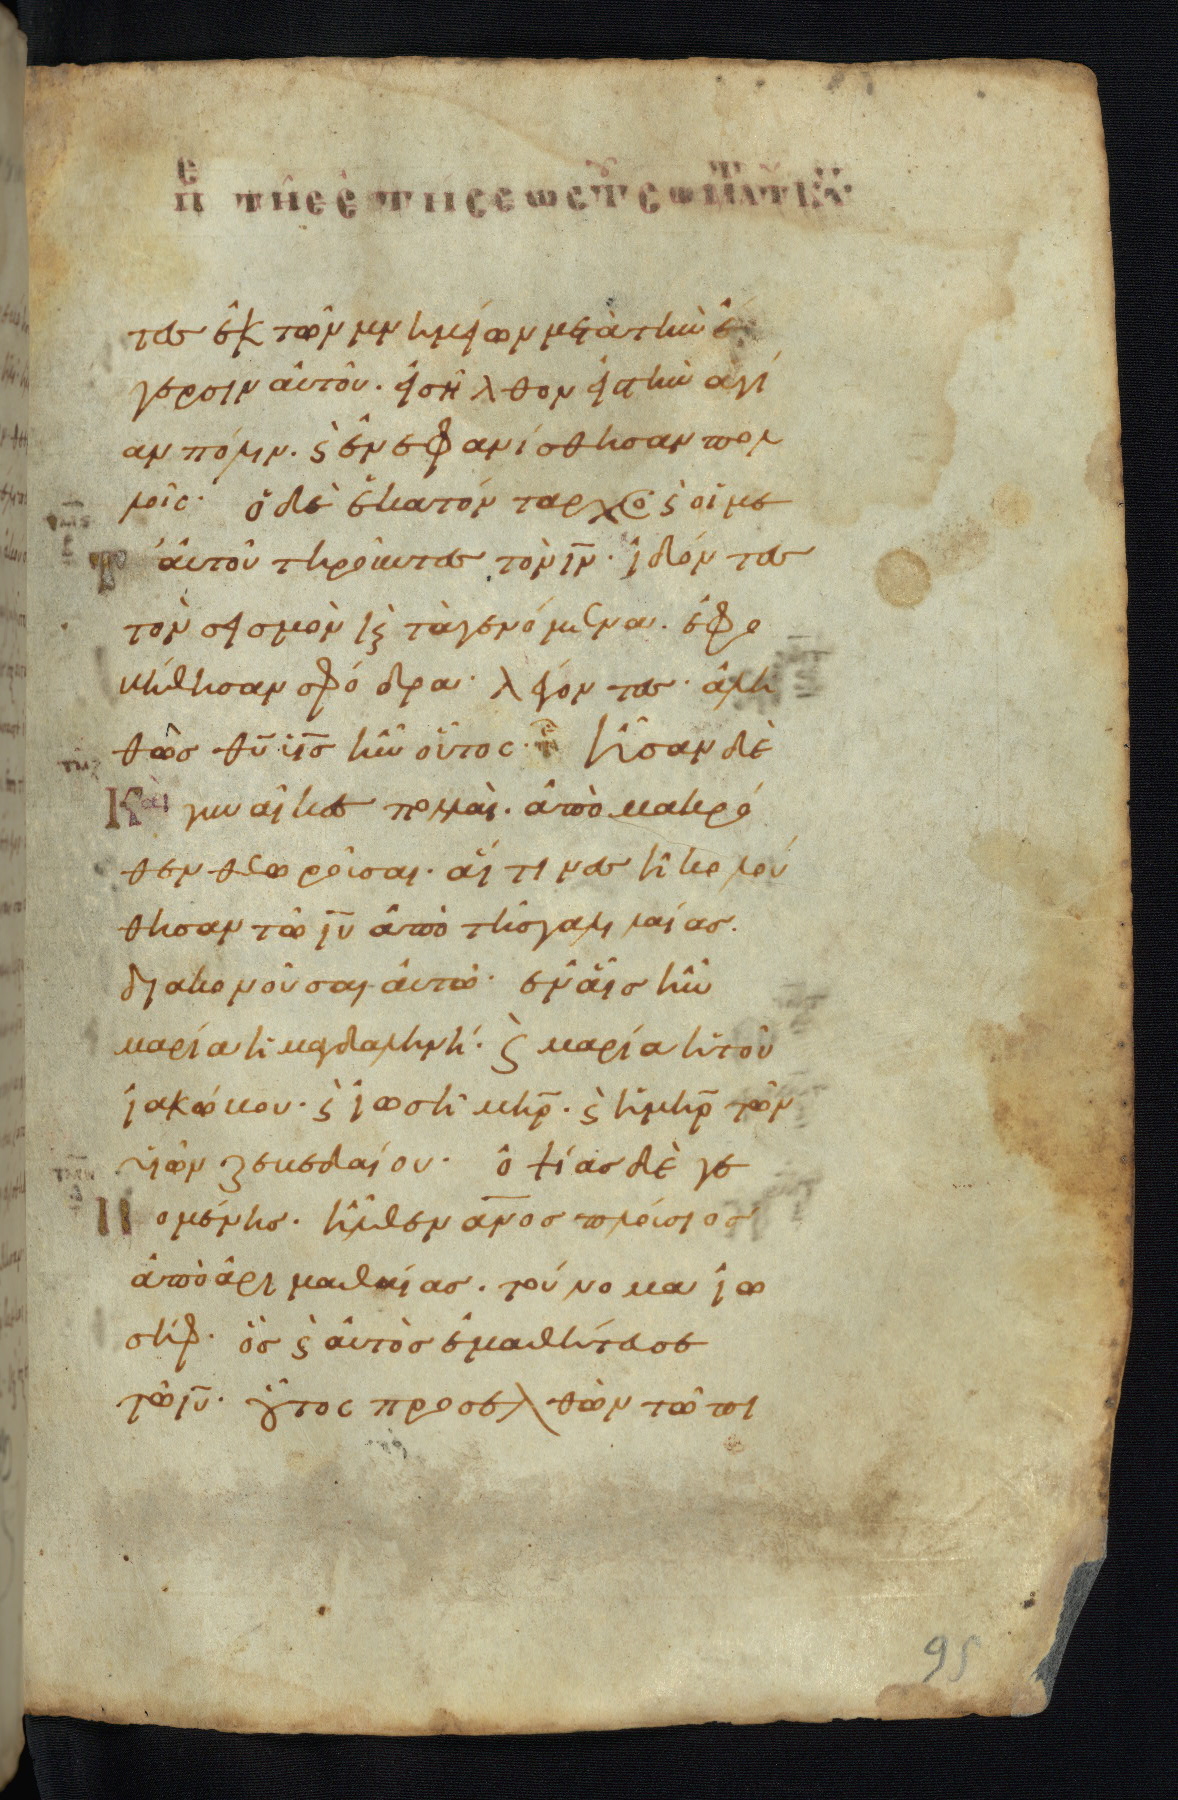 τες ἐκ τῶν μνημείων μετὰ τὴν ἔ
γερσιν αὐτοῦ. εἰσῆλθον εἰς τὴν ἁγί
αν πόλιν. ϛ ἐνεφανίσθησαν πολ
λοῖς. ὁ δὲ ἑκατόνταρχος ϛ οἱ με
τ αὐτοῦ τηροῦντες τὸν ιν̄. ἰδόντες
τὸν σεισμὸν κϛ τὰ γενόμενα. ἐφο
βήθησαν σφόδρα. λέγοντες. ἀλη
θῶς θῡ υἱς̄ ἦν οὗτος. ἦσαν δὲ
Καὶ γυναῖκες πολλαὶ. ἀπὸ μακρό
θεν θεωροῦσαι. αἵτινες ἠκολού
θησαν τῶ ιῡ ἀπὸ τῆς γαλιλαίας.
διακονοῦσαι αὐτῶ. ἐν αἷς ἦν
μαρία ἡ μαγδαληνή. ϛ μαρία ἡ τοῦ
ἰακώβου. ϛ ἰωσῆ μηρ̄. ϛ ἡ μηρ̄ τῶν
υἱῶν ζεβεδαίου. ὀψίας δὲ γε
νομένης. ἦλθεν ᾱνος πλούσιος
ἀπὸ ἀριμαθαίας. τοὔνομα ἰω
σήφ. ὃς ϛ αὐτὸς ἐμαθήτευσε
τῶ ιῡ. οὗτος προσελθὼν τῶ πι
95